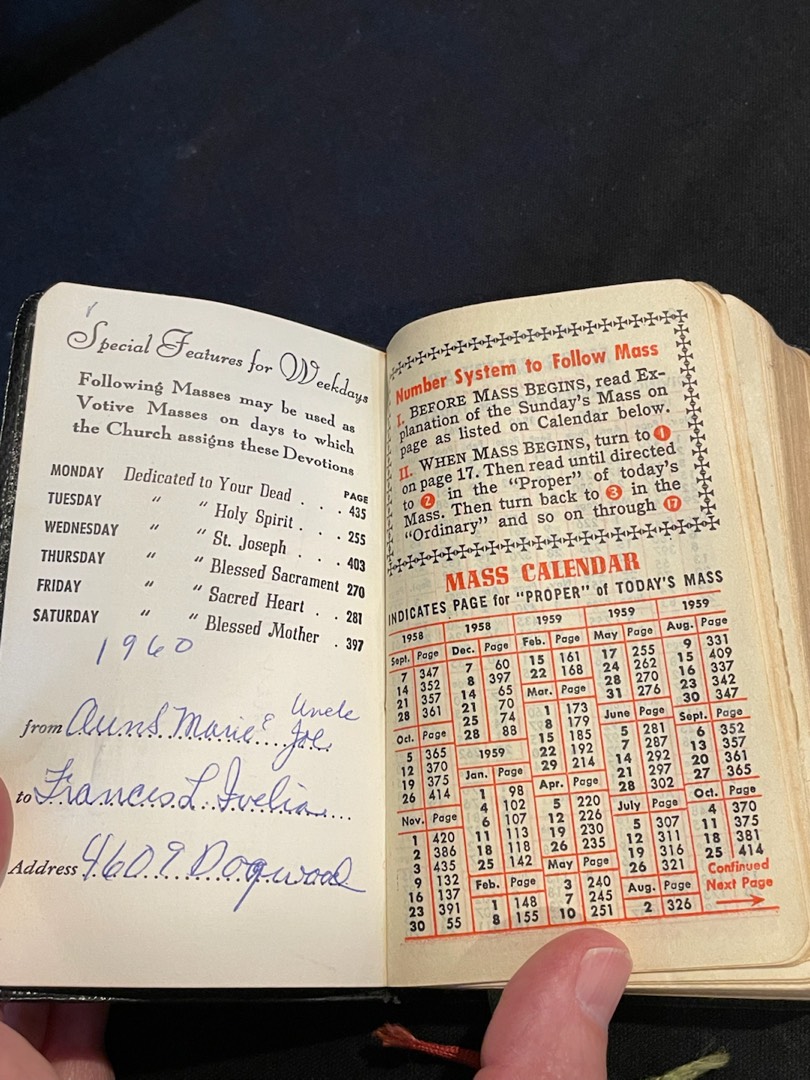 Special Features for Weekdays
Following Masses may be used as
Votive Masses on days to which
the Church assigns these Devotions
PAGE
MONDAY Dedicated to Your Dead . . . 435
TUESDAY " " Holy Spirit . . . 255
WEDNESDAY " " St. Joseph . . . 403
THURSDAY " " Blessed Sacrament 270
FRIDAY " " Sacred Heart . . 281
SATURDAY " " Blessed Mother . 397
1960
from Aunt Marie & Uncle Joe
to Frances L.
Address 4609 Dogwood
Number System to Follow Mass
I. BEFORE MASS BEGINS, read Ex-
planation of the Sunday's Mass on
page as listed on Calendar below.
II. WHEN MASS BEGINS, turn to 1
on page 17. Then read until directed
to 2 in the "Proper" of today's
Mass. Then turn back to 3 in the
"Ordinary" and so on through 17
MASS CALENDAR
INDICATES PAGE for "PROPER" of TODAY'S MASS
1958
Sept. Page
7 347
14 352
21 357
28 361
Oct. Page
5 365
12 370
19 375
26 414
Nov. Page
1 420
2 386
3 435
9 132
16 137
23 391
30 55
1958
Dec. Page
7 60
8 397
14 65
21 70
25 74
28 88
1959
Jan. Page
1 98
4 102
6 107
11 113
18 118
25 142
Feb. Page
1 148
8 155
1959
Feb. Page
15 161
22 168
Mar. Page
1 173
8 179
15 185
22 192
29 214
Apr. Page
5 220
12 226
19 230
26 235
May Page
3 240
7 245
10 251
1959
May Page
17 255
24 262
28 270
31 276
June Page
5 281
7 287
14 292
21 297
28 302
July Page
5 307
12 311
19 316
26 321
Aug. Page
2 326
1959
Aug. Page
9 331
15 409
16 337
23 342
30 347
Sept. Page
6 352
13 357
20 361
27 365
Oct. Page
4 370
11 375
18 381
25 414
Continued
Next Page